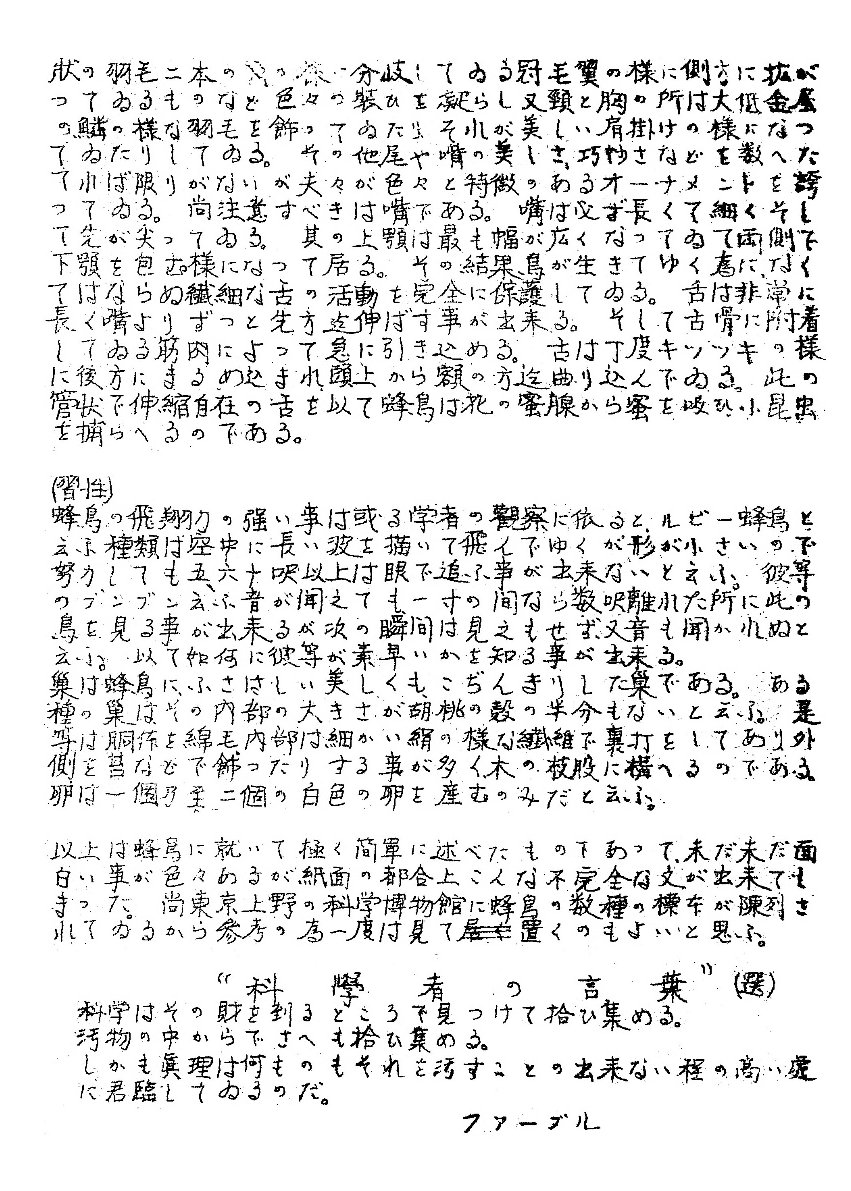 狀の羽毛二本の又の様に分岐してゐる冠毛翼の様に側方に拡が
つてゐるもの など色々の装ひを凝らし又頸の胸の所は大低金屬
の鱗の様な羽毛を飾つてゐたりそれが美しい肩掛の様になつた
てゐたりしてゐる。その他尾や嘴の美しさ、巧妙さなどを数へた
て小ば限りがない がその夫々が色々と特徴のあるオナメントを誇
つてゐる。尚注意すべきは嘴である。嘴は必ず一長くて細くそし
て先が尖つてゐる。其の上顎では最も幅が広くなつてゐて両側で
下顎を包む様になつて居る。その結果鳥が生きてゆく為に、なくて
はならぬ繊細な舌の活動を完全に保護してゐる。舌は非常に
長く嘴よりずつと先の方迄伸ばす事が出来る。そして舌骨附着
しているゐる筋肉によつて急に引き込める。舌は丁度キツキの様
に後方にまるめ込まれて頭上から額の方迄曲り込んでゐる。此の
管狀で伸縮自在の舌を以て蜂鳥は花の蜜腺から蜜を吸ひ小昆虫
を捕らへるのである。
(習性)
蜂鳥の飛翔力の強い事は或る学者の観察に依ると、ルビー蜂鳥と
云ふ種類は空中に長い波をは描いて飛んでゆくが形が小さいの下
努力してもも五、六十呎以上はて眼で追ふ事が出来ない云ふ。彼等
のブンブン云ふ音が聞えても一寸の間なら数呎離れた所に此の
鳥を見る事が出来る次が瞬間は見えず、又音も聞かれぬと
云ふ。以て如何に彼等が素早いかを知る事が出来る。
巣は蜂鳥にふさはしい美しく、もこぢんまりした巣である。ある
種の巣はその内部の大きさがい胡桃の殻の半分もないと云ふ。是
等は胴体を綿毛の部は細い絹の様な繊維で裏打をしてあり外
側を苔などで飾つたりする事が多く木の枝股に横へるのである。
卵は一個乃至二個の白色の卵を産むのみだと云ふ。
以上は蜂鳥に就いて極く簡單に述べたもので あつて、未だ未だ面
白い事が色々あるが紙面の都合上こんな不完全な文が出来てしま
つた。尚東京上野の科学博物館に蜂鳥の数種もの標本が陳列さ
れてゐるから参考の為一度は見て置くのもよいと思ふ。
"科學者の言葉" (選)
科学はその財を到るところで見つけて拾ひ集める。
汚物の中からでさへも拾ひ集める。
しかも眞理は何ものもそれを汚すことの出来ない程の高い處
に君臨してゐるのだ。
ファーブル